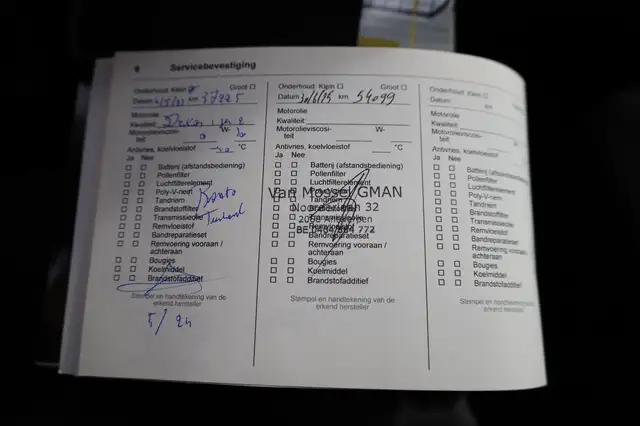 6 Servicebevestiging
Onderhoud Klein Groot
Datum km 37225
Motorolie
Kwaliteit
Motorolieviscosi- W-
teit
Antivries, koelvloeistof °C
Ja Nee
Batterij (afstandsbediening)
Pollenfilter
Luchtfilterelement
Poly-V-riem
Tandriem
Brandstoffilter
Transmissieolie
Remvloeistof
Bandreparatieset
Remvoering vooraan /
achteraan
Bougies
Koelmiddel
Brandstofadditief
Stempel en handtekening van de
erkend hersteller
5/24
Onderhoud Klein Groot
Datum km 54099
Motorolie
Kwaliteit
Motorolieviscosi- W-
teit
Antivries, koelvloeistof °C
Ja Nee
Batterij (afstandsbediening)
Pollenfilter
Luchtfilterelement
Van Mossel GMAN
Bandreparatieset
Remvoering vooraan /
achteraan
Bougies
Koelmiddel
Brandstofadditief
Stempel en handtekening van de
erkend hersteller
Onderhoud Klein
Datum
Motorolie
Kwaliteit
Motorolieviscosi-
teit
Antivries, koelvloeistof
Ja Nee
Batterij (afstandsbediening)
Pollenfilter
Luchtfilterelement
Poly-V-riem
Tandriem
Brandstoffilter
Transmissieolie
Remvloeistof
Bandreparatieset
Remvoering vooraan /
achteraan
Bougies
Koelmiddel
Brandstofadditief
Stempel en handtekening van
erkend hersteller